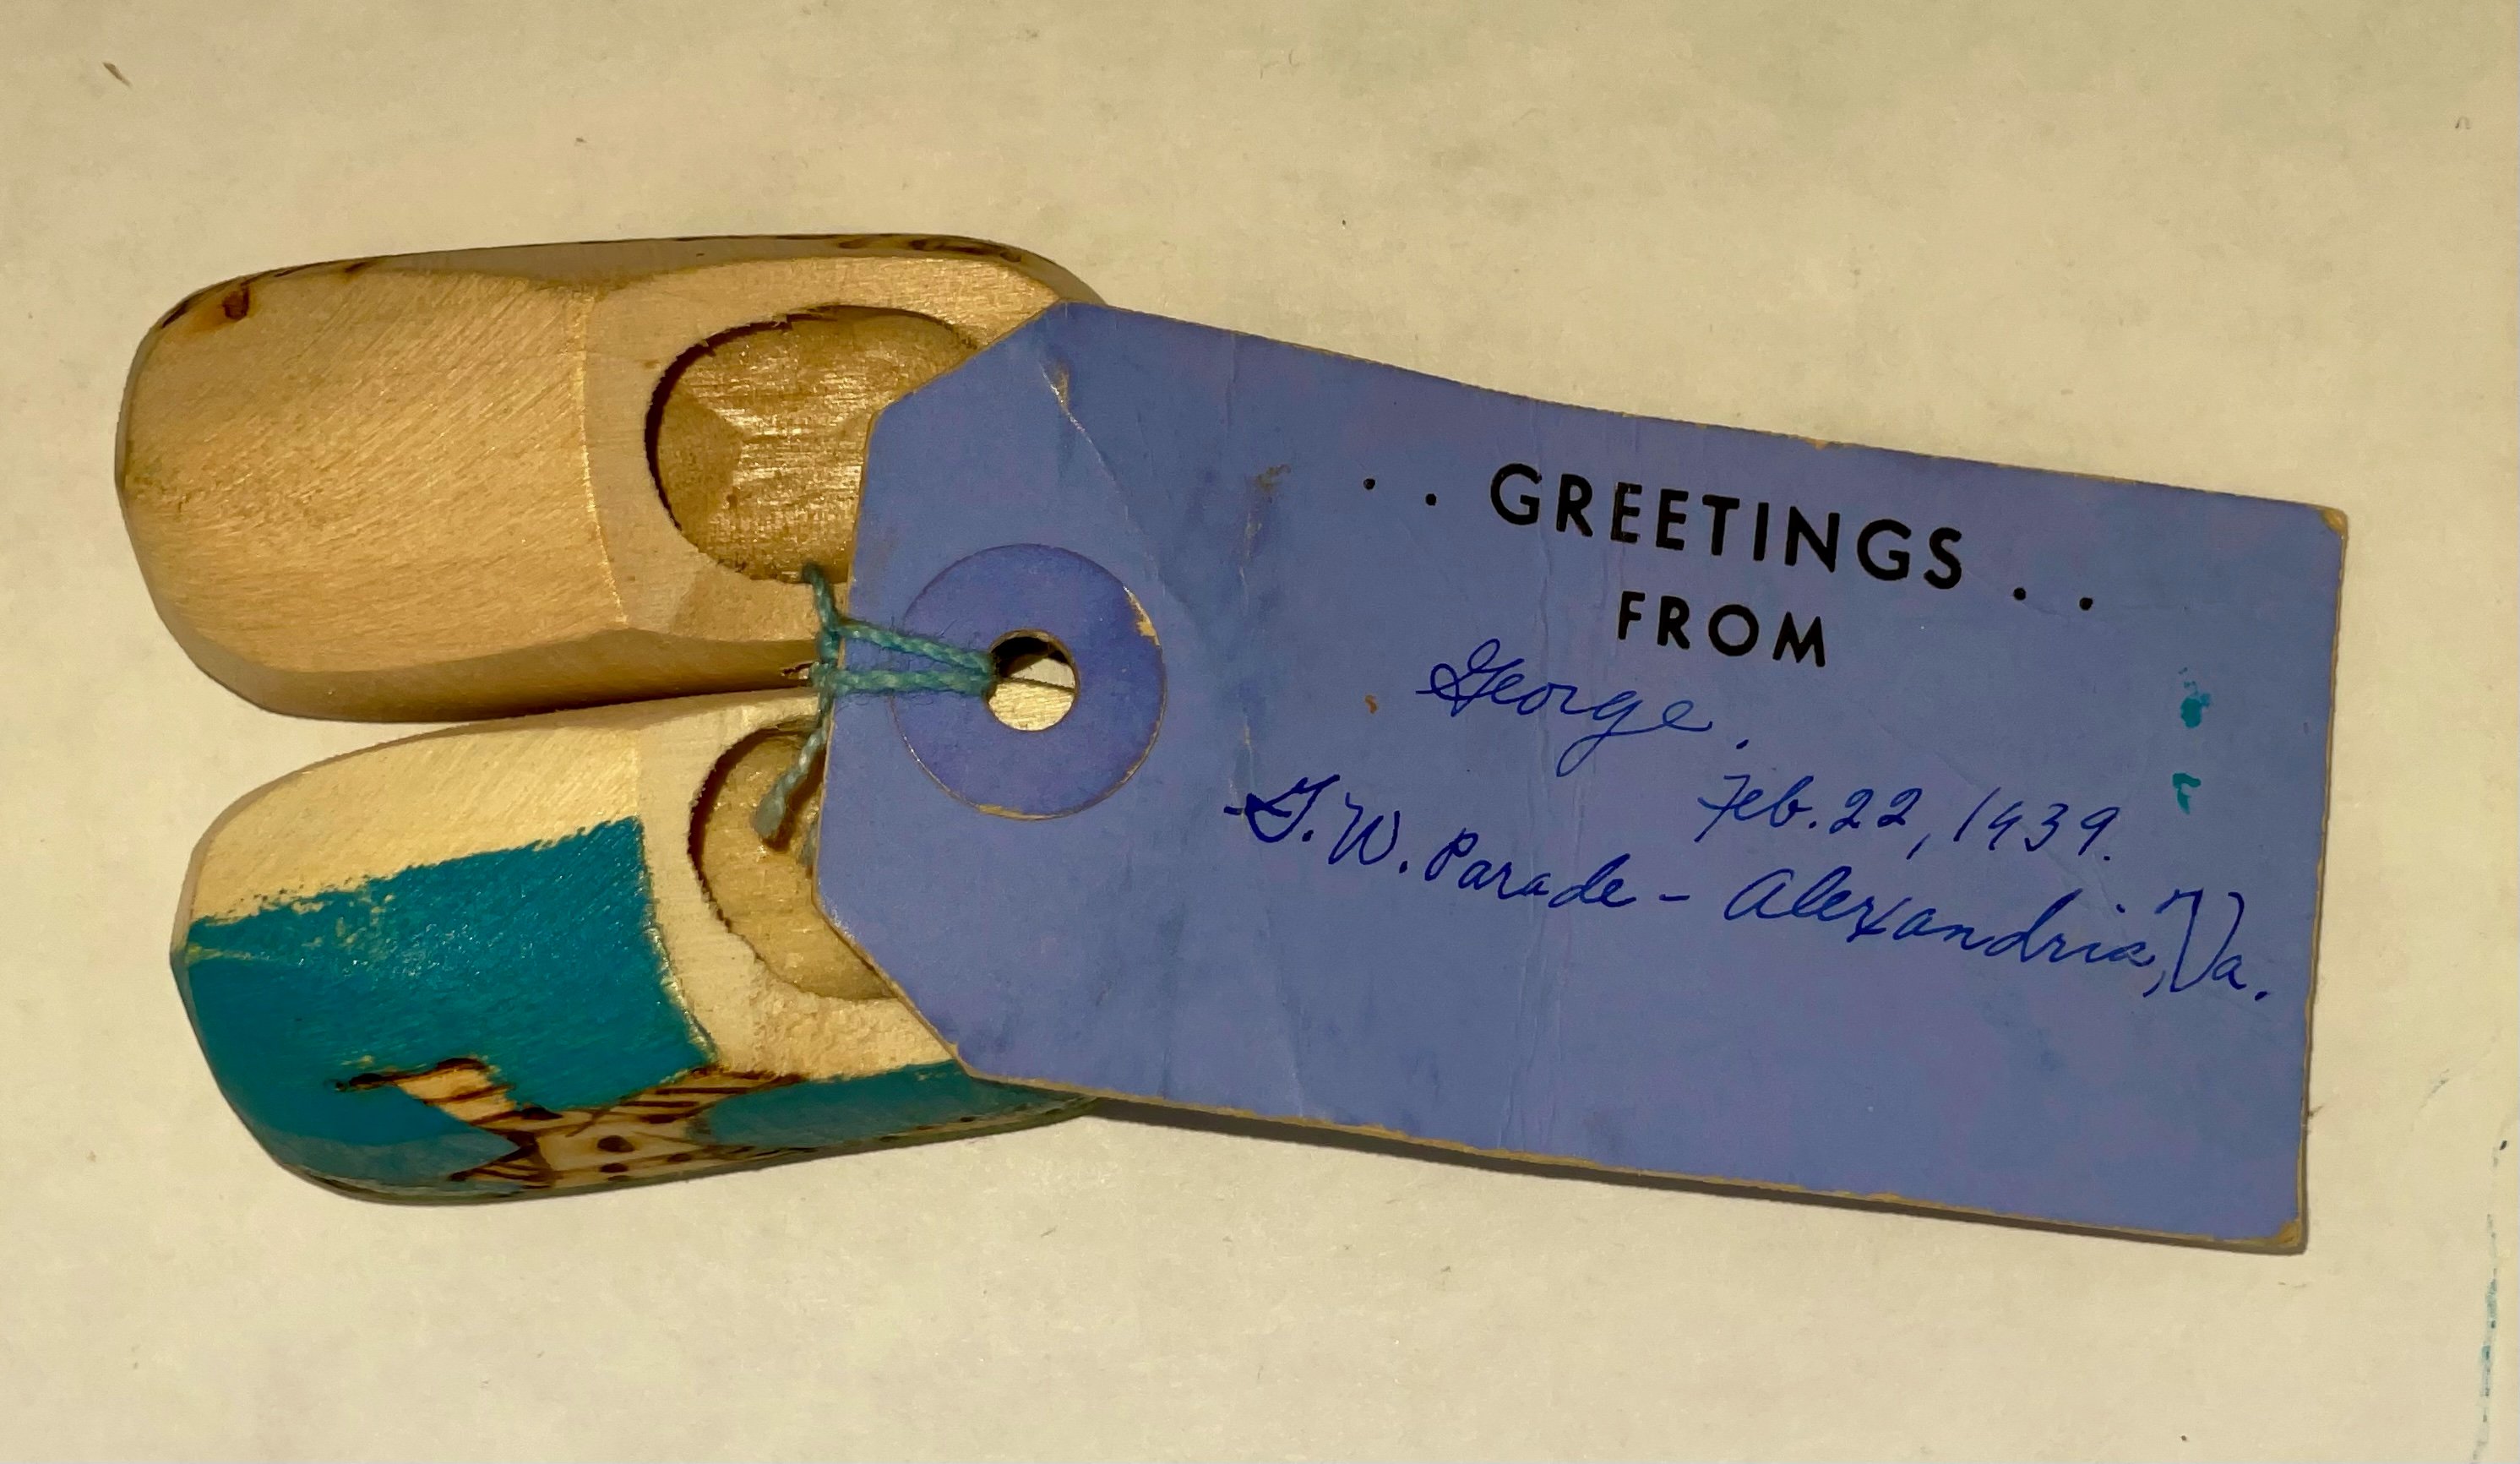 . . GREETINGS . .
FROM
George.
Feb. 22, 1939.
G. W. Parade - Alexandria, Va.